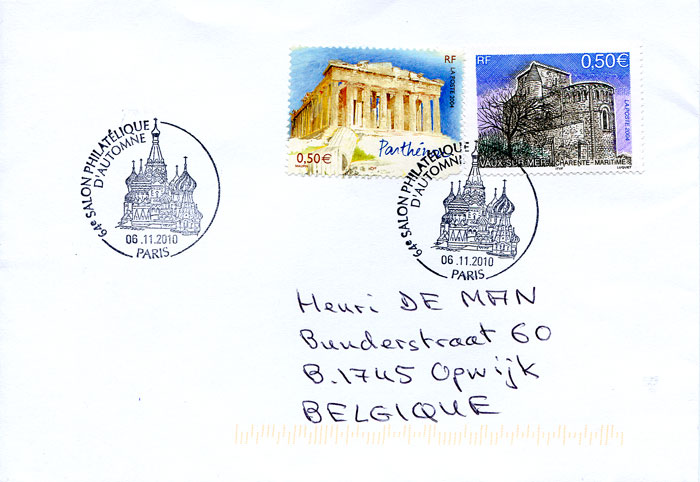 RF
LA POSTE 2004
0,50€
Parthénon
RF
0,50€
LA POSTE 2004
VAUX-SUR-MER CHARENTE-MARITIME
64e SALON PHILATÉLIQUE
D'AUTOMNE
06.11.2010
PARIS
64e SALON PHILATÉLIQUE
D'AUTOMNE
06.11.2010
PARIS
Henri DE MAN
Bunderstraat 60
B.1745 Opwijk
BELGIQUE